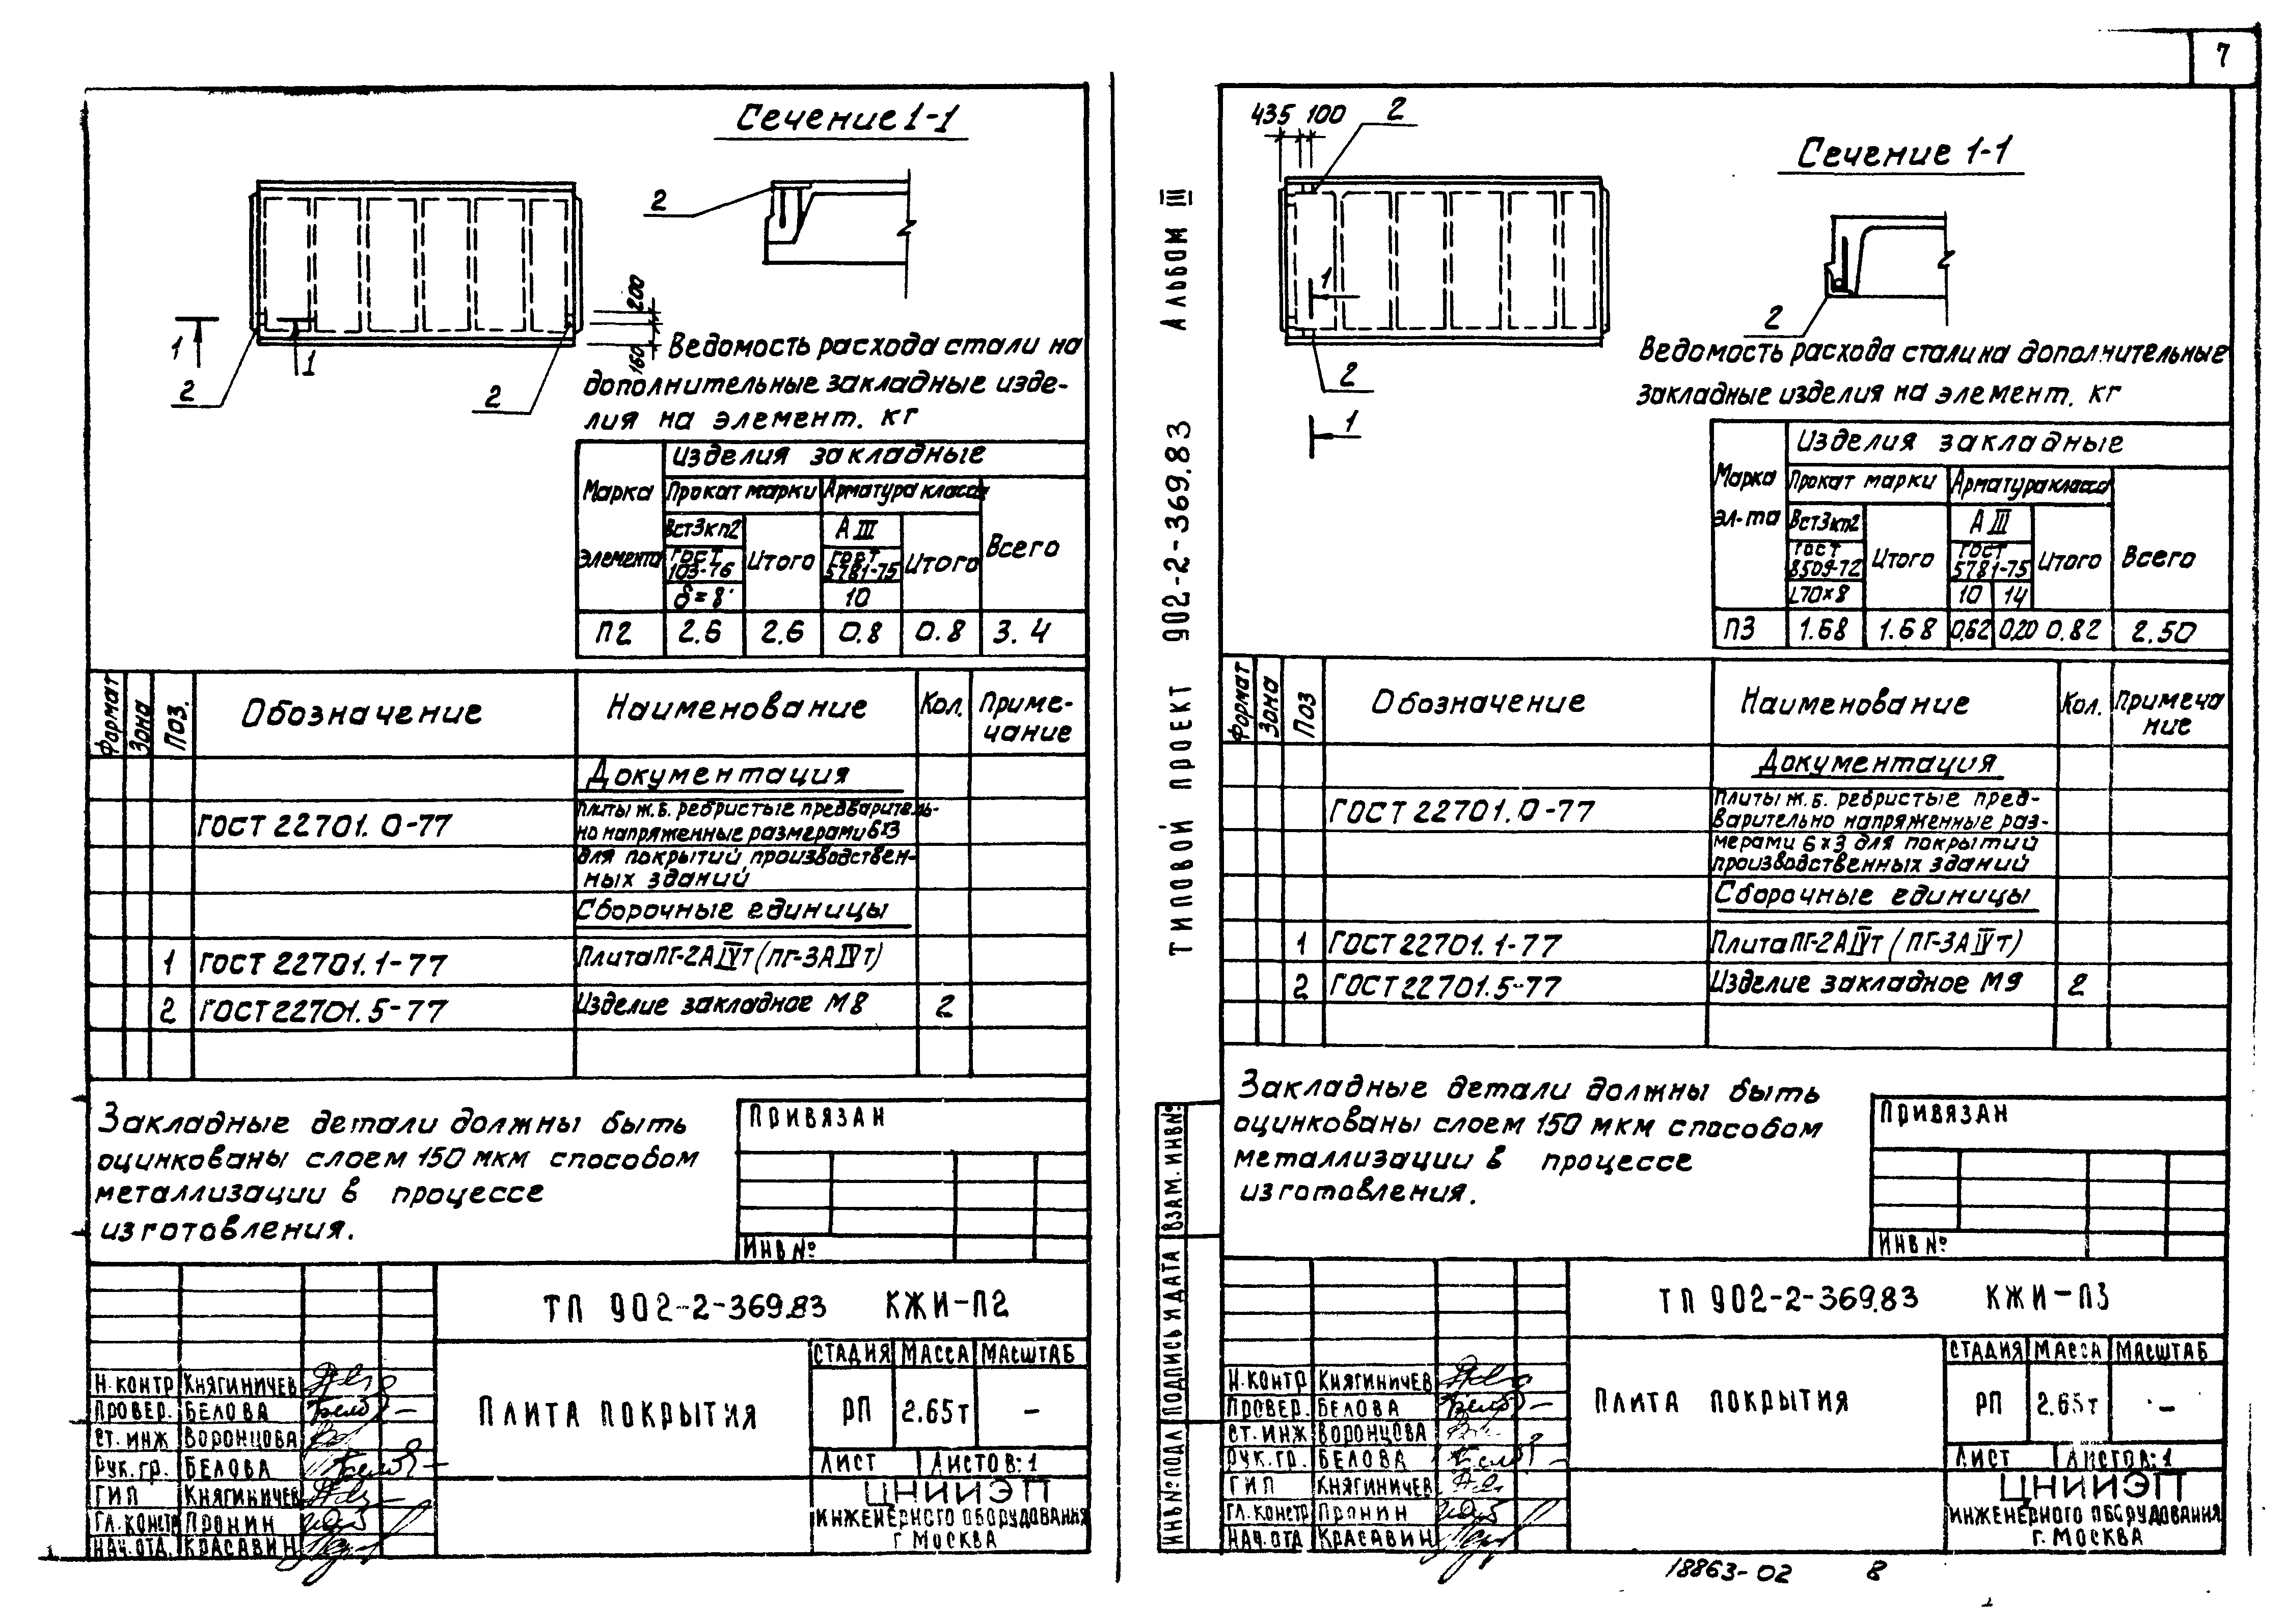 7
Сечение 1-1
2
200
160
1
1
2
2
Ведомость расхода стали на
дополнительные закладные изде-
лия на элемент. кг
Марка элемента
Изделия закладные
Прокат марки
Арматура класса
Всего
Вст3кп2
Итого
А III
Итого
ГОСТ 103-76
ГОСТ 5781-75
δ=8
10
П2 2.6 2.6 0.8 0.8 3.4
Формат Зона Поз. Обозначение Наименование Кол. Приме-
чание
Документация
ГОСТ 22701.0-77 Плиты ж.б. ребристые предваритель-
но напряженные размерами 6х3
для покрытий производствен-
ных зданий
Сборочные единицы
1 ГОСТ 22701.1-77 Плита ПГ-2АIVт (ПГ-3АIVт)
2 ГОСТ 22701.5-77 Изделие закладное М8 2
Закладные детали должны быть
оцинкованы слоем 150 мкм способом
металлизации в процессе
изготовления.
ПРИВЯЗАН
ИНВ №
ТП 902-2-369.83 КЖИ-П2
ПЛИТА ПОКРЫТИЯ
СТАДИЯ МАССА МАСШТАБ
РП 2.65т –
ЛИСТ ЛИСТОВ: 1
Н.КОНТР КНЯГИНИЧЕВ
ПРОВЕР. БЕЛОВА
СТ.ИНЖ ВОРОНЦОВА
РУК.ГР. БЕЛОВА
ГИП КНЯГИНИЧЕВ
ГЛ.КОНСТР ПРОНИН
НАЧ.ОТД. КРАСАВИН
ЦНИИЭП
ИНЖЕНЕРНОГО ОБОРУДОВАНИЯ
Г МОСКВА
ТИПОВОЙ ПРОЕКТ 902-2-369.83 АЛЬБОМ III
ИНВ № ПОДЛ ПОДПИСЬ И ДАТА ВЗАМ. ИНВ №
435 100
2
Сечение 1-1
1
2
2
1
Ведомость расхода стали на дополнительные
закладные изделия на элемент. кг
Марка эл-та
Изделия закладные
Прокат марки
Арматура класса
Всего
Вст3кп2
Итого
А III
Итого
ГОСТ 8509-72
ГОСТ 5781-75
L70×8
10 14
П3 1.68 1.68 0,62 0,20 0.82 2.50
Формат Зона Поз Обозначение Наименование Кол. Примеча
ние
Документация
ГОСТ 22701.0-77 Плиты ж.б. ребристые пред-
варительно напряженные раз-
мерами 6х3 для покрытий
производственных зданий
Сборочные единицы
1 ГОСТ 22701.1-77 Плита ПГ-2АIVт (ПГ-3АIVт)
2 ГОСТ 22701.5-77 Изделие закладное М9 2
Закладные детали должны быть
оцинкованы слоем 150 мкм способом
металлизации в процессе
изготовления.
ПРИВЯЗАН
ИНВ №
ТП 902-2-369.83 КЖИ-П3
ПЛИТА ПОКРЫТИЯ
СТАДИЯ МАССА МАСШТАБ
РП 2.65т –
ЛИСТ ЛИСТОВ: 1
Н.КОНТР КНЯГИНИЧЕВ
ПРОВЕР. БЕЛОВА
СТ.ИНЖ ВОРОНЦОВА
РУК.ГР. БЕЛОВА
ГИП КНЯГИНИЧЕВ
ГЛ.КОНСТР ПРОНИН
НАЧ.ОТД КРАСАВИН
ЦНИИЭП
ИНЖЕНЕРНОГО ОБОРУДОВАНИЯ
Г. МОСКВА
18863-02 8